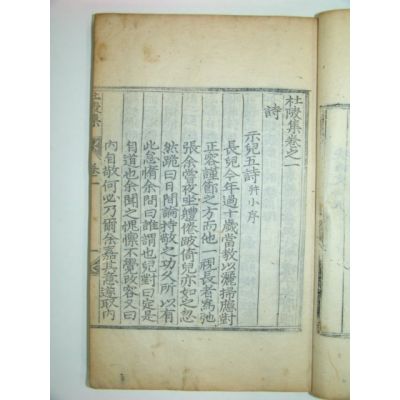 杜陵集卷之一
詩
示兒五詩 幷小序
長兒今年過十歲當敎以灑掃應對
正容謹節之方而他一視長者爲弛
張余嘗夜坐軆倦跛倚兒亦如之忽
然跪曰日間論持敬之功久所以有
此怠惰余問曰誰謂也兒對曰定是
自道也余聞之愧懍不覺改容又曰
內自敬何必乃爾余嘉其意遂取內
杜陵集 卷一